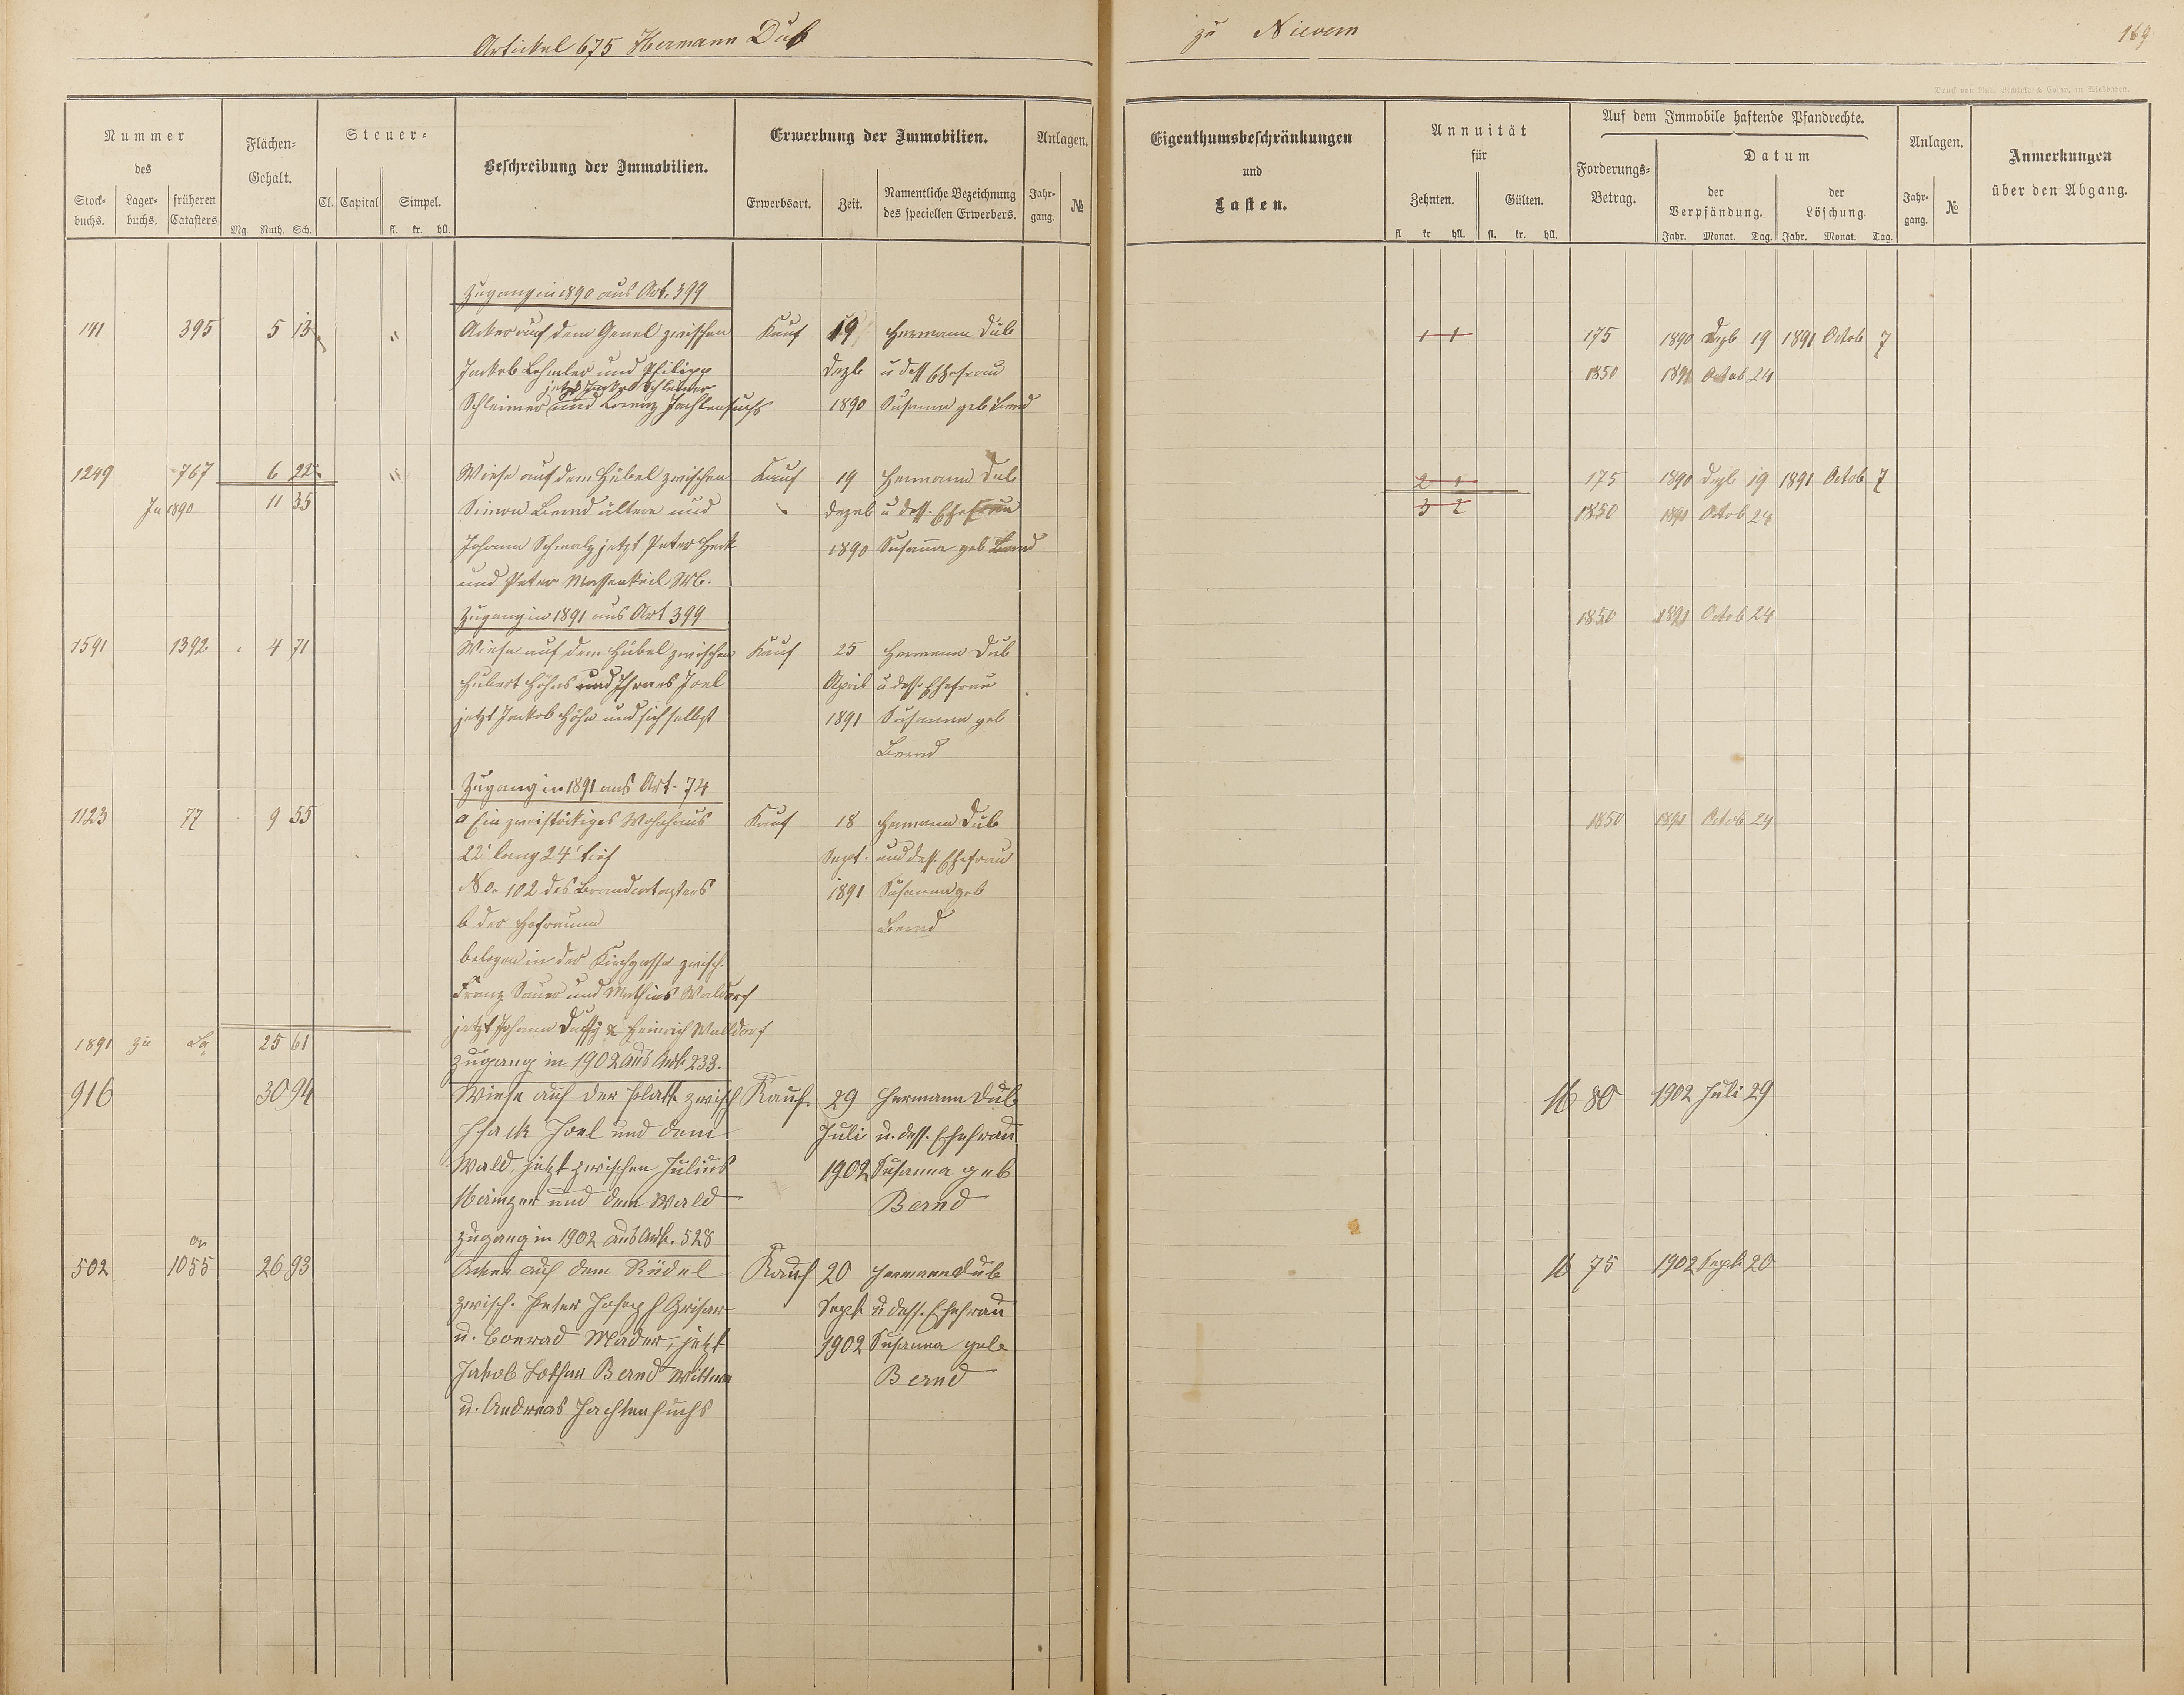 Artickel 675 Hermann Dub
zu Nievern
169
Nummer
des
Stock-
buchs.
Lager-
buchs.
früheren
Catasters
Flächen-
Gehalt.
Mg. Ruth. Sch.
Steuer-
Cl. Capital Simpel.
fl. kr. hll.
Beschreibung der Immobilien.
Erwerbung der Immobilien.
Erwerbsart. Zeit.
Namentliche Bezeichnung
des speciellen Erwerbers.
Anlagen.
Jahr-
gang.
№
Eigenthumsbeschränkungen
und
Lasten.
Annuität
für
Zehnten. Gülten.
fl. kr hll. fl. kr. hll.
Auf dem Immobile haftende Pfandrechte.
Forderungs-
Betrag.
Datum
der
Verpfändung.
der
Löschung.
Jahr. Monat. Tag. Jahr. Monat. Tag.
Anlagen.
Jahr-
gang.
№
Anmerkungen
über den Abgang.
Zugang in 1890 aus Art. 399
141 395 5 13 Acker auf dem zwischen Kauf 19 Hermann Dub 1 1 175 1890 Dezb 19 1891 Octob 7
Jackob und Philipp Dezb u dess Ehefrau 1850 1891 Octob 24
jetzt Jackob Schleimer
Schleimer und Lorenz Jachtenfuchs 1890 Susanna geb Bernd
1249 767 6 22 Wiese auf dem Hübel zwischen Kauf 19 Hermann Dub 2 1 175 1890 Dezb 19 1891 Octob 7
In 1890 11 35 Simon Bernd ältere und Dezeb u dess. Ehefrau 3 2 1850 1891 Octob 24
Johann Schmalz jetzt Peter Heck 1890 Susanna geb Bernd
und Peter Massenkeil
Zugang in 1891 aus Art 399 1850 1891 Octob 24
1591 1392 4 71 Wiese auf dem Hübel zwischen Kauf 25 Hermann Dub
Hubert Höhns und Joel April u dess. Ehefrau
jetzt Jackob Höhn und sich selbst 1891 Susanna geb
Bernd
Zugang in 1891 aus Art. 74
1123 77 9 55 a Ein zweistöckiges Wohnhaus Kauf 18 Hermann Dub 1850 1891 Octob 24
22' lang 24' tief Sept. und dess. Ehefrau
No. 102 des Brandcatasters 1891 Susanna geb
b der Hofraum Bernd
belegen in der Kirchgasse zwisch.
Franz Sauer und Mathias Waldorf
jetzt Johann & Heinrich Walldorf
1891 zu 25 61
Zugang in 1902 aus Art. 233.
916 30 94 Wiese auf der Platt zwisch Kauf 29 Hermann Dub M 80 1902 Juli 29
Isack Joel und dem Juli u. dess. Ehefrau
Wald, jetzt zwischen Julius 1902 Susanna geb
und dem Wald Bernd
Zugang in 1902 aus Art. 528
502 1055 26 93 Acker auf dem Kauf 20 Hermann Dub M 75 1902 Sept 20
zwisch. Peter Joseph Grisar Sept u dess. Ehefrau
u. Conrad Mader, jetzt 1902 Susanna geb
Jakob Lothar Bernd Wittwe Bernd
u. Andreas Jachtenfuchs